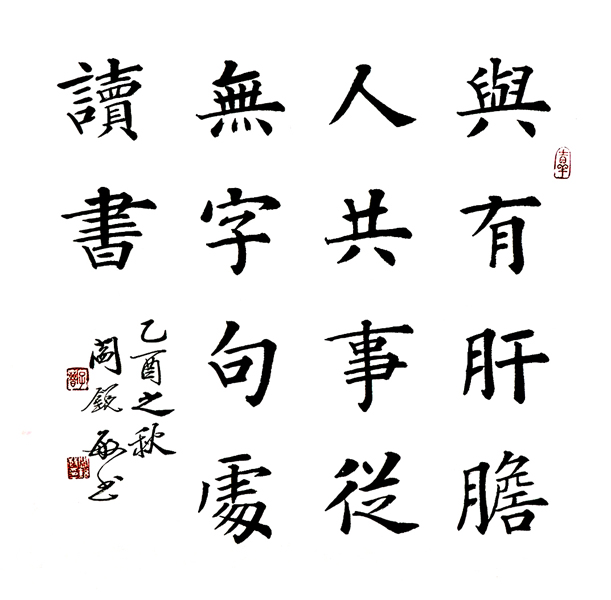 與有肝膽
人共事從
無字句處
讀書
乙酉之秋
閻銳敏书